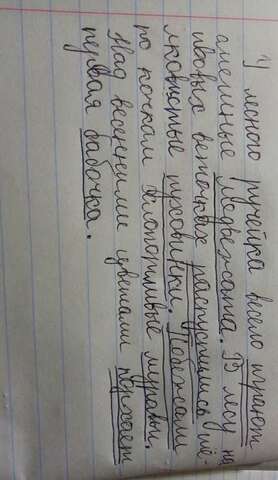 У лесного ручейка весело играют
смешные медвежата. В лесу на
ивовых веточках распустились шё-
лковистые пуховички. Побежали
по кочкам хлопотливые муравьи.
Над весенними цветами порхает
первая бабочка.